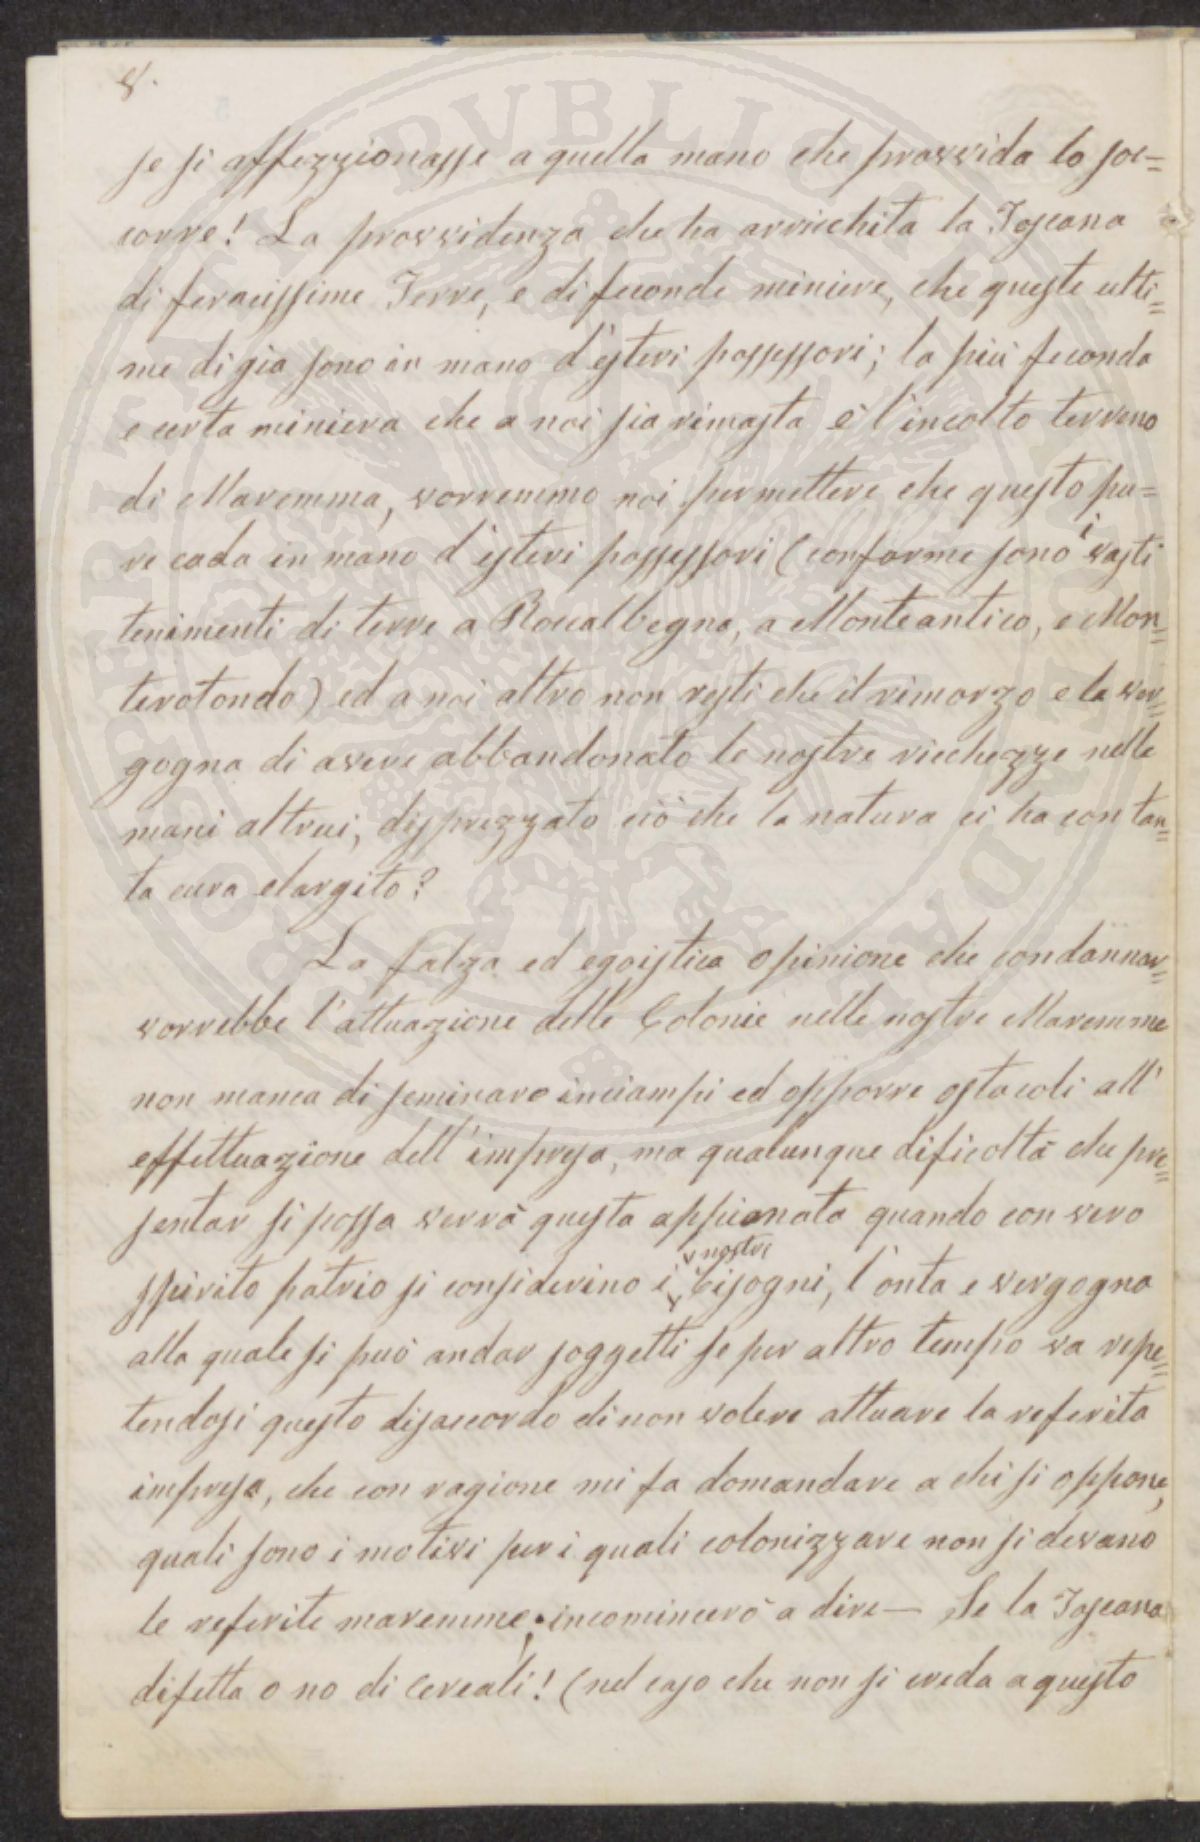 8.
se si affezzionasse a quella mano che provvida lo soc=
corre! La provvidenza che ha arricchita la Toscana
di feracissime Terre, e di feconde miniere, che queste ulti=
me di gia sono in mano d'esteri possessori; la più feconda
e certa miniera che a noi sia rimasta è l'incolto terreno
di Maremma, vorremmo noi permettere che questo pu=
re cada in mano d'esteri possessori (conforme sono i vasti
tenimenti di terre a Roccalbegna, a Monteantico, e Mon=
terotondo) ed a noi altro non resti che il rimorzo e la ver=
gogna di avere abbandonato le nostre ricchezze nelle
mani altrui, disprezzato ciò che la natura ci ha con tan=
ta cura elargito?
La falza ed egoistica opinione che condannar=
vorrebbe l'attuazione delle Colonie nelle nostre Maremme
non manca di seminare inciampi ed opporre ostacoli all'
effettuazione dell'impresa, ma qualunque dificoltà che pre=
sentar si possa verrà questa appianata quando con vero
spirito patrio si considerino i nostri bisogni, l'onta e vergogna
alla quale si può andar soggetti se per altro tempo va ripe=
tendosi questo disaccordo di non volere attuare la referita
impresa, che con ragione mi fa domandare a chi si oppone,
quali sono i motivi per i quali colonizzare non si devano
le referite maremme; incomincerò a dire — Se la Toscana
difetta o no di Cereali! (nel caso che non si creda a questo
BIBLIOTHECAE PVBLICAE